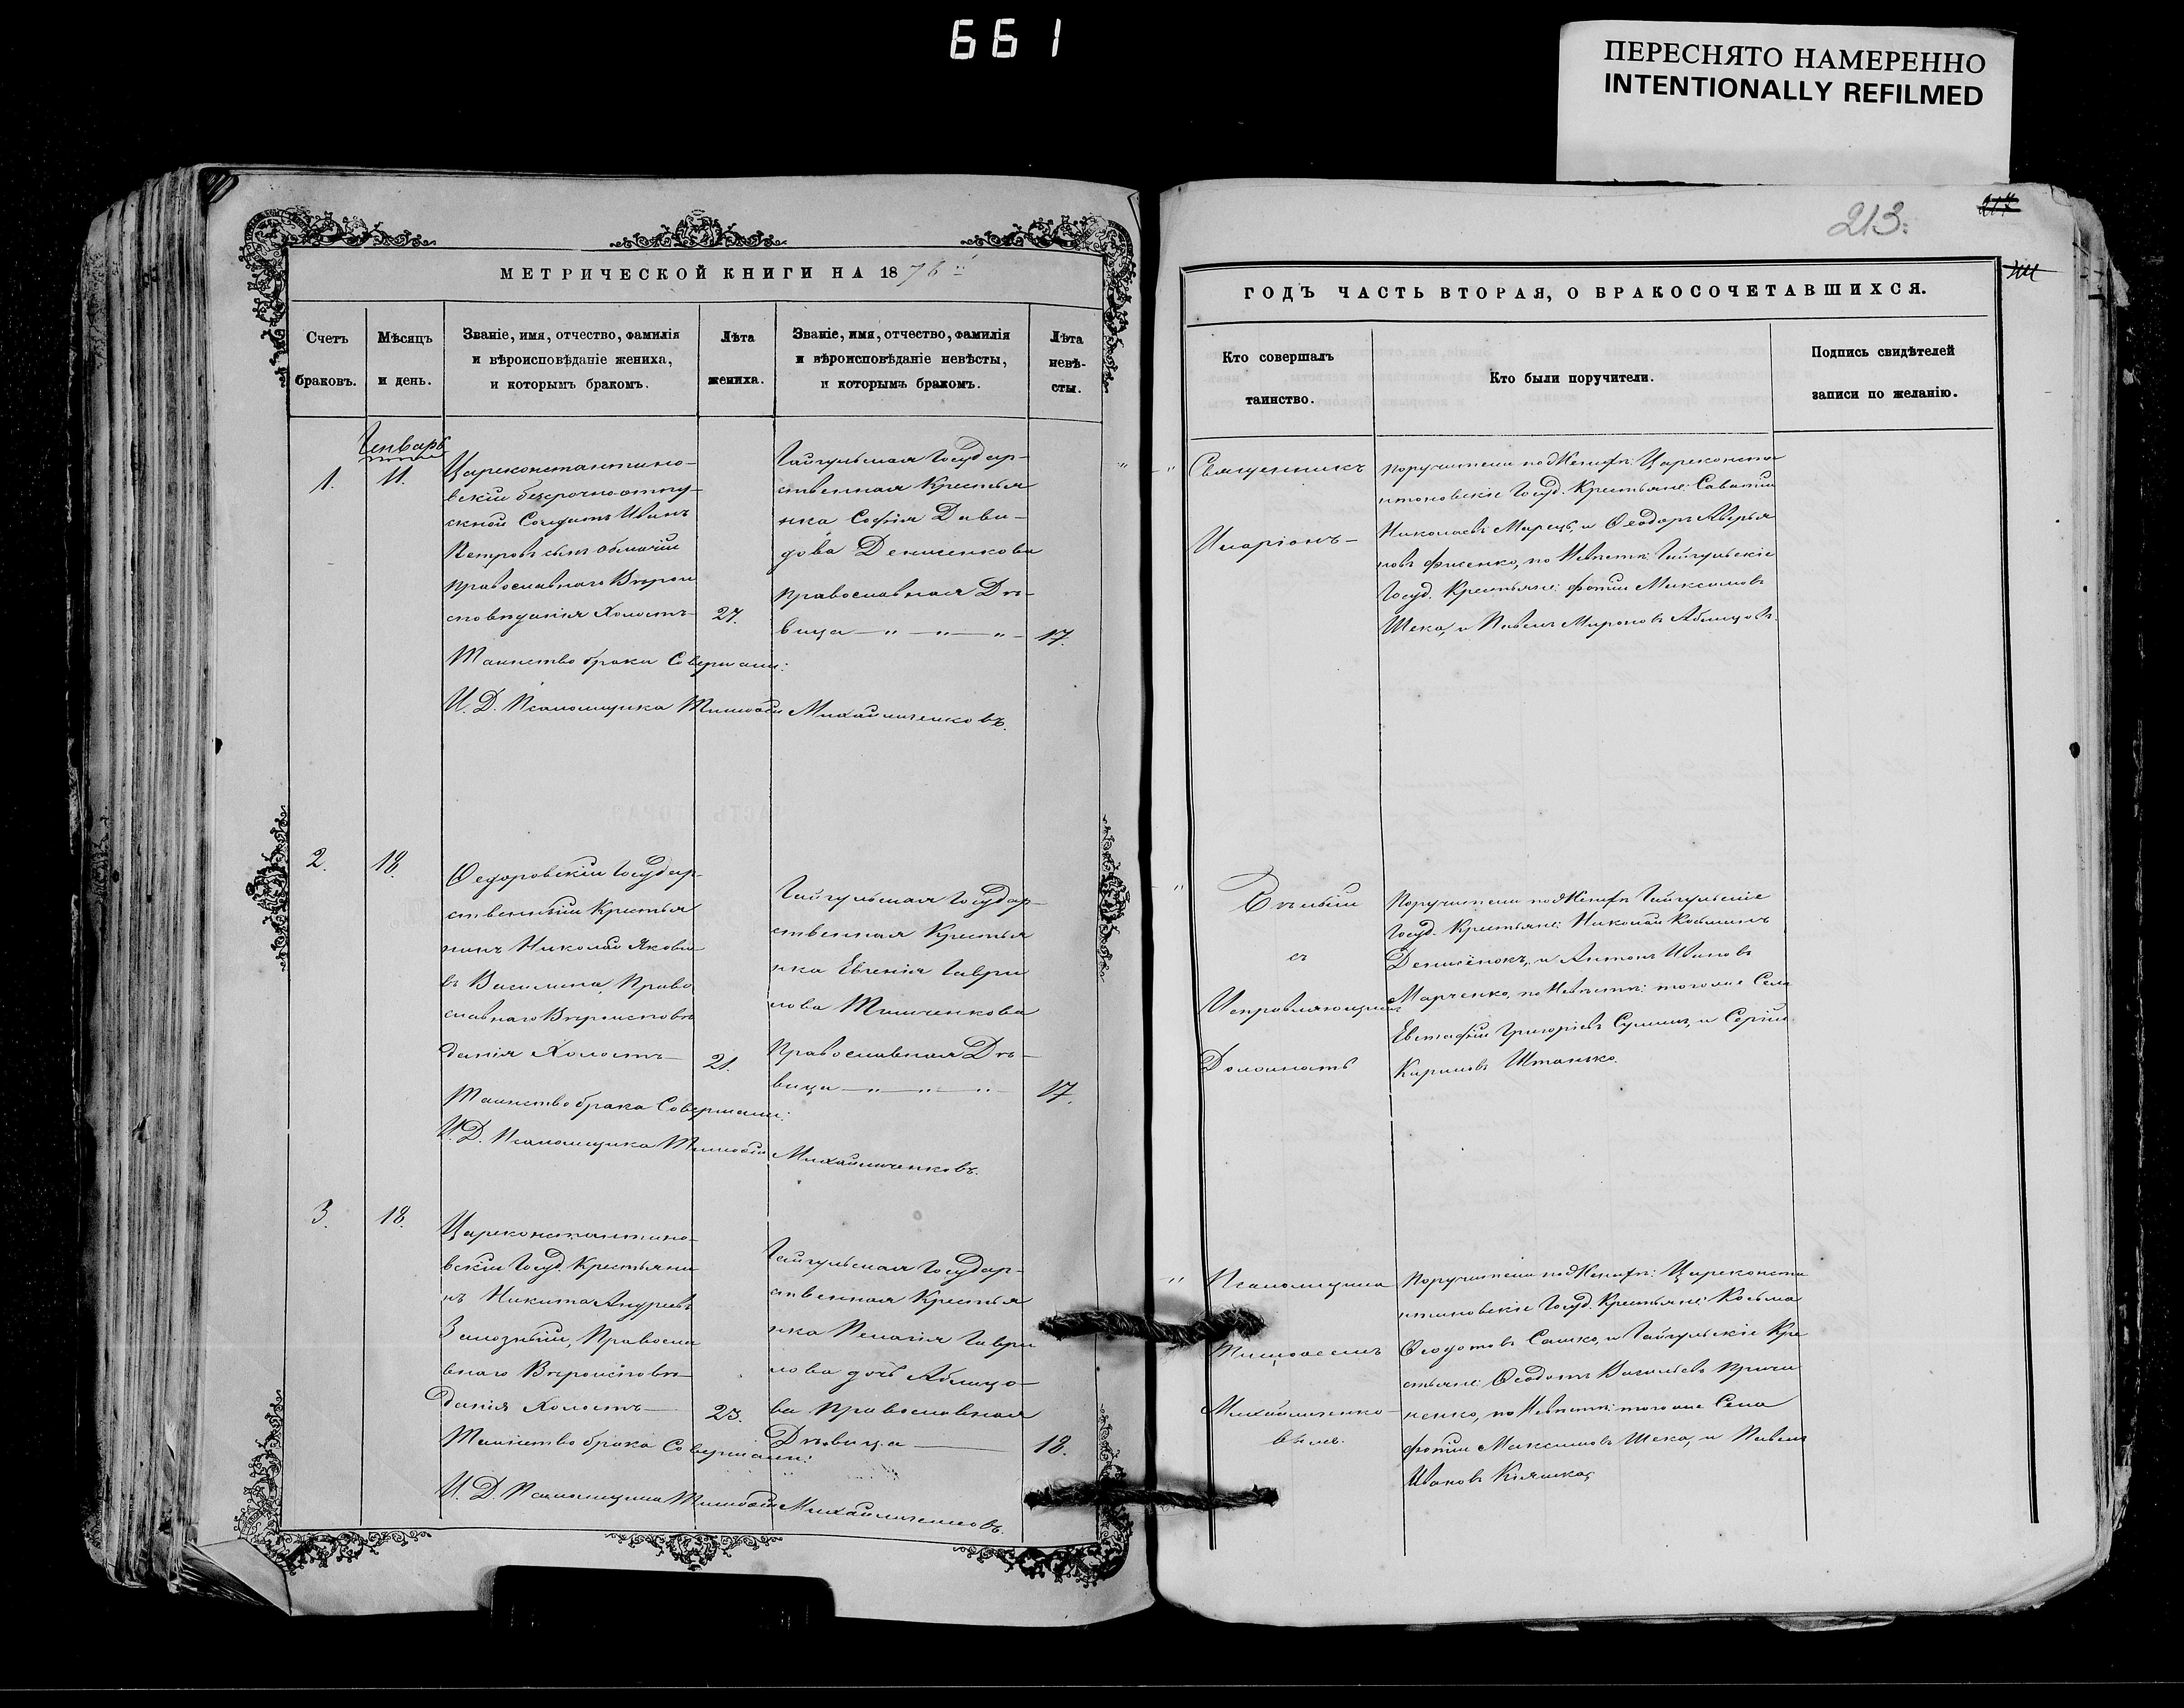 661
ПЕРЕСНЯТО НАМЕРЕННО
INTENTIONALLY REFILMED
МЕТРИЧЕСКОЙ КНИГИ НА 1876й
Счетъ браковъ.
Мѣсяцъ и день.
Званіе, имя, отчество, фамилія
и вѣроисповѣданіе жениха,
и которымъ бракомъ.
Лѣта жениха.
Званіе, имя, отчество, фамилія
и вѣроисповѣданіе невѣсты,
и которымъ бракомъ.
Лѣта
невѣ-
сты.
Генварь
1.
11.
Цареконстантино-
вскій безсрочноотпу-
скной Солдатъ Иванъ
Петровъ сынъ
Православнаго Вѣрои
сповѣданія Холостъ
27.
Гайчульская Государ-
ственная Крестья
нка Софія Дави-
дова Денисенкова
Православная Дѣ-
вица — " — " — " —
17.
Таинство брака Совершали:
И. Д. Псаломщика Тимофей Михайличенковъ.
2.
18.
Ѳедоровскій Государ-
ственный Крестья
нинъ Николай Яковле
въ Василина, Право
славнаго Вѣроисповѣ
данія Холостъ—
21.
Гайчульская Государ-
ственная Крестья
нка Евгенія Гаври
лова Тимченкова
Православная Дѣ-
вица — " — " — " —
17.
Таинство брака Совершали:
И. Д. Псаломщика Тимофей Михайличенковъ.
3.
18.
Цареконстантино-
вскій Госуд. Крестьяни
нъ Никита Андреевъ
Залозный, Правосла
внаго Вѣроисповѣ—
данія Холостъ—
23.
Гайчульская Государ-
ственная Крестья
нка Пелагія Гаври
лова дочь Аблицо-
ва Православная
Дѣвица —
18.
Таинство брака Совершали:
И. Д. Псаломщика Тимофей Михайличенковъ.
213.
217
ГОДЪ ЧАСТЬ ВТОРАЯ, О БРАКОСОЧЕТАВШИХСЯ.
Кто совершалъ
таинство.
Кто были поручители.
Подпись свидѣтелей
записи по желанію.
Священникъ
Иларіонъ—
Поручители по Женихѣ: Цареконста
нтиновскіе Госуд. Крестьяне: Саватій
Николаевъ Марецъ, и Ѳеодоръ Аверья
новъ Фисенко, по Невѣстѣ: Гайчульскіе
Госуд. Крестьяне: Фотій Максимовъ
Шека, и Павелъ Мироновъ Аблицовъ.
Бѣлый
съ
Исправляющимъ
Должность
Поручители по Женихѣ Гайчульскіе
Госуд. Крестьяне: Николай Косьминъ
Денисенокъ, и Антонъ Ивановъ
Марченко, по Невѣстѣ: того же Села
Евстафій Григорьевъ Сушинъ, и Сергій
Кириловъ Штанько.
Псаломщика
Тимофеемъ
Михайличенко-
вымъ.
Поручители по Женихѣ: Цареконста
нтиновскіе Госуд. Крестьяне: Косьма
Ѳеодотовъ Сашко, и Гайчульскіе Кре
стьяне: Ѳеодотъ Васильевъ Причи
ненко, по Невѣстѣ: того же Села
Фотій Максимовъ Шека, и Павелъ
Ивановъ Кляшка.